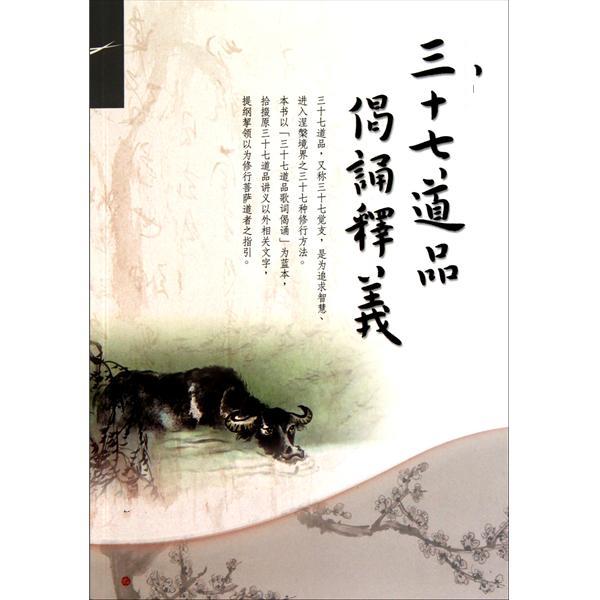 三十七道品
偈誦釋義
三十七道品，又称三十七觉支，是为追求智慧、
进入涅槃境界之三十七种修行方法。
本书以「三十七道品歌词偈诵」为蓝本，
拾掇原三十七道品讲义以外相关文字，
提纲挈领以为修行菩萨道者之指引。